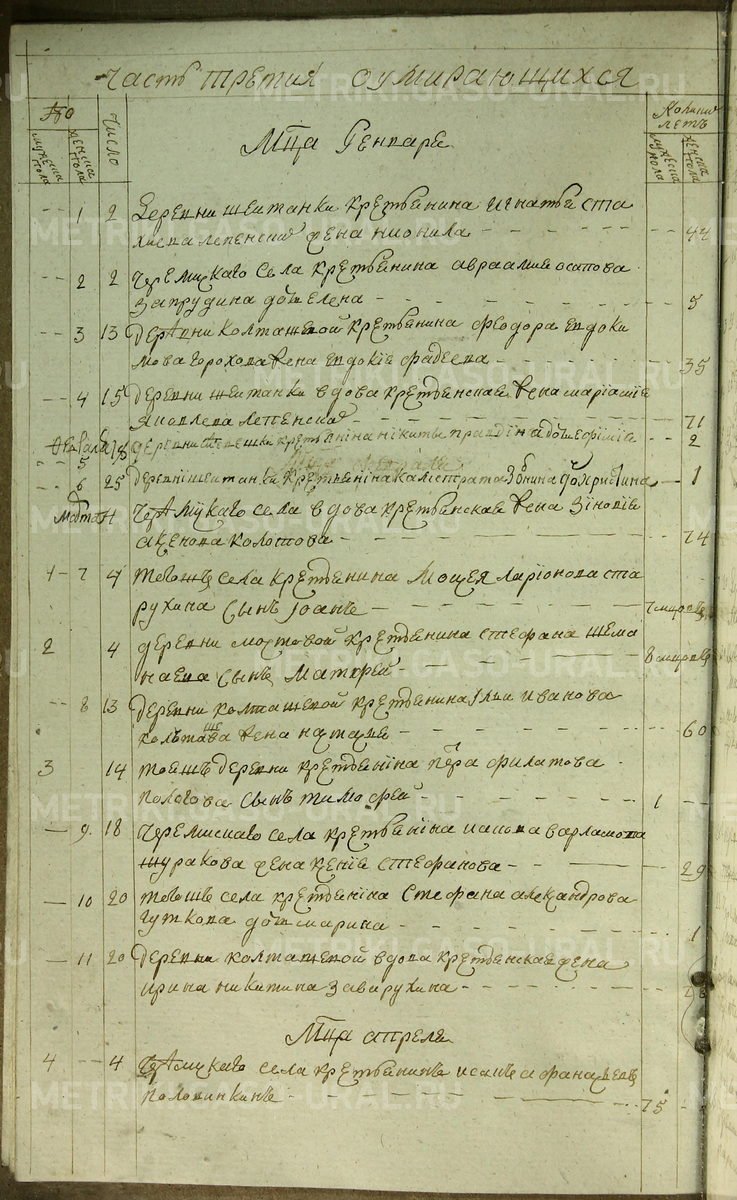 Часть третия оумирающихся
No
мужеска пола
женска пола
число
Колики летъ
мужеска пола
женска пола
Мца Генваря
1 2 деревни шеитанки крестьянина игнатья ста
жена нионила 44
2 2 черемискаго села крестьянина авраамия осипова
запрудина дощь елена 5
3 13 деревни колташевой крестьянина феодора евдоки
мова горохова жена евдокия фадеева 35
4 15 деревни шеитанки вдова крестьянская жена мариамия
яковлева 71
февраля 5 18 деревни крестьянина никиты дощь ефимия 2
6 25 деревни шеитанки крестьянина калистрата дощь христина 1
Марта 4 черемускаго села вдова крестьянская жена зиновия
колотова 74
1 7 4 тогошъ села крестьянина Мосея ларионова ста
рухина сынъ Іоанъ
2 4 деревни крестьянина стефана шема
наева сынъ матфей
8 13 деревни колташевой крестьянина Ильи иванова
жена наталья 60
3 14 тоешъ деревни крестьянина петра филатова
пологова сынъ тимофей 1
9 18 черемискаго села крестьянина иакова варламова
шуракова жена ксения стефанова 29
10 20 тогошъ села крестьянина стефана александрова
гуткова дощь марина 1
11 20 деревни колташевой вдова крестьянская жена
ирина никитина заварухина
Мца апреля
4 4 черемускаго села крестьянинъ исаия афанасьевъ
половинкинъ 75
METRIKI.GASO-URAL.RU